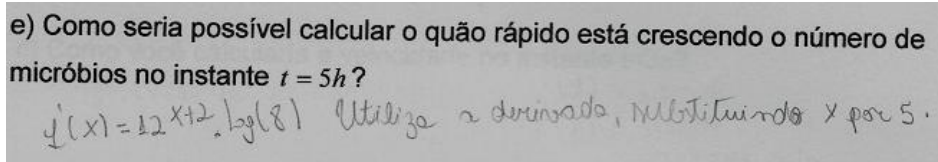 e) Como seria possível calcular o quão rápido está crescendo o número de
micróbios no instante t = 5h?
y'(x) = 12^x+2 . log(8) Utiliza a derivada, substituindo x por 5.